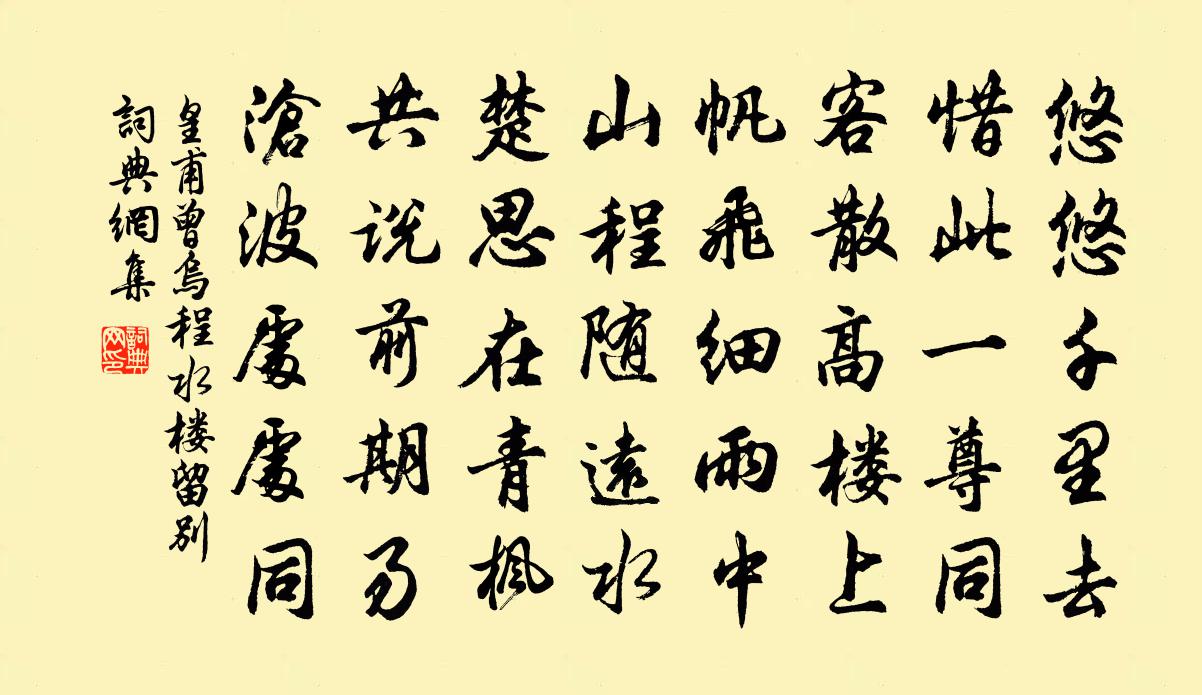 悠悠千里去
惜此一尊同
客散高楼上
帆飛细雨中
山程随遠水
楚思在青楓
共说前期易
滄波處處同
皇甫曾烏程水楼留别
詞典網集
詞典网印